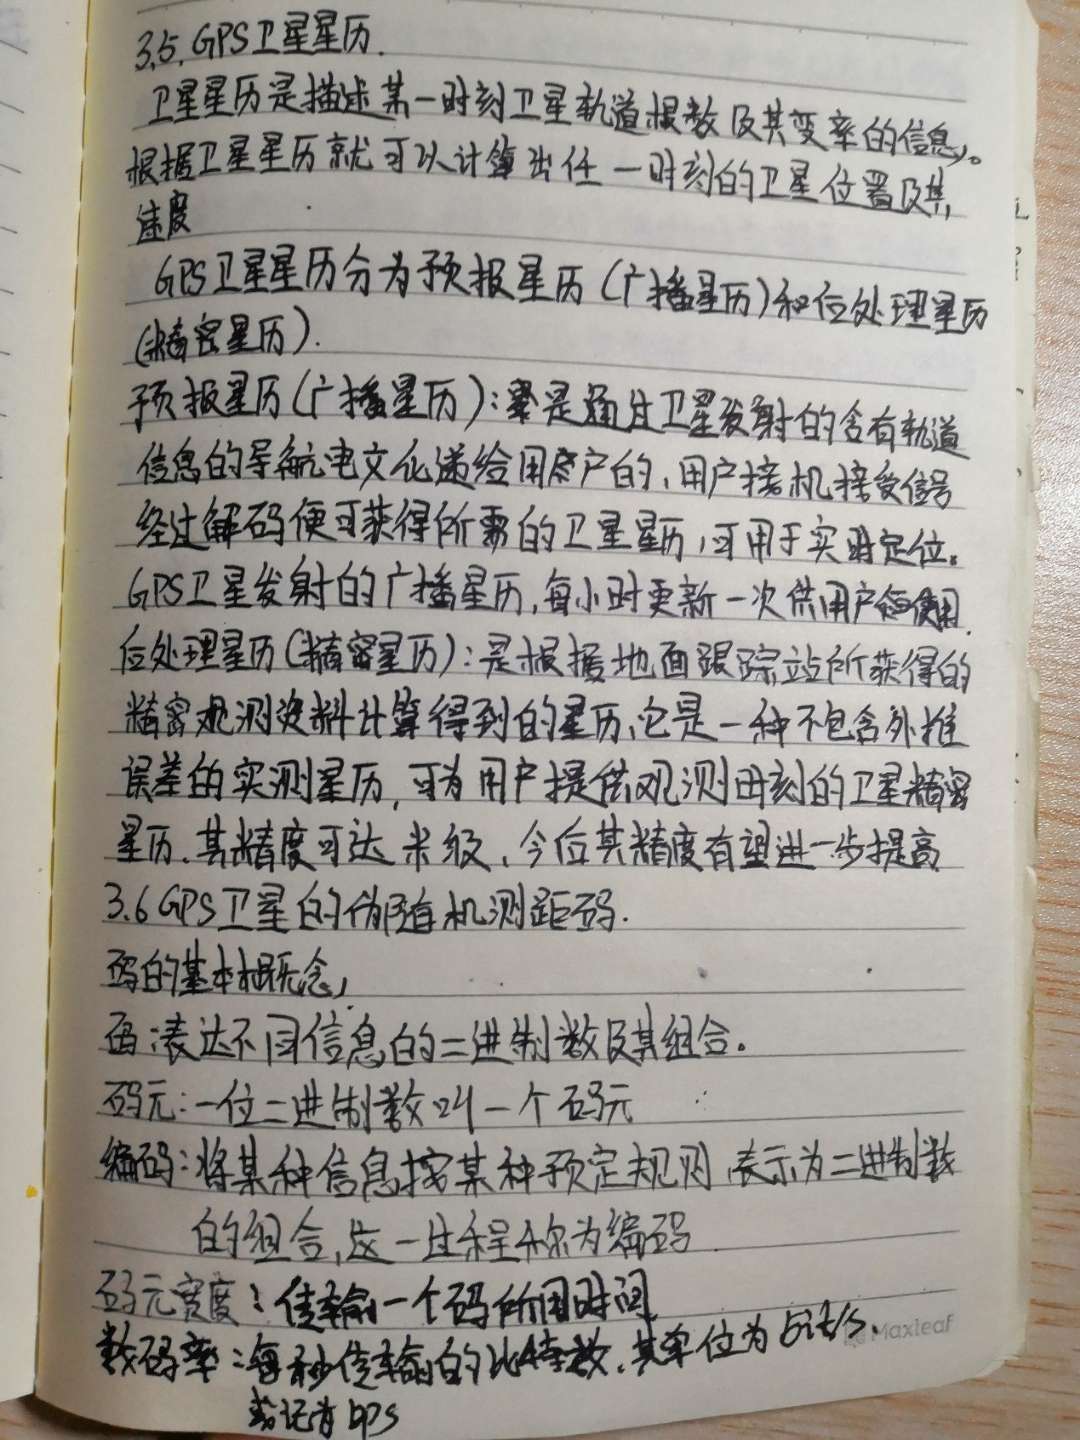 3.5. GPS卫星星历.
卫星星历是描述某一时刻卫星轨道根数及其变率的信息。
根据卫星星历就可以计算出任一时刻的卫星位置及其
速度
GPS卫星星历分为预报星历(广播星历)和后处理星历
(精密星历).
预报星历(广播星历):是通过卫星发射的含有轨道
信息的导航电文传递给用户的,用户接机接受信号
经过解码便可获得所需的卫星星历,可用于实时定位。
GPS卫星发射的广播星历,每小时更新一次供用户使用.
后处理星历(精密星历):是根据地面跟踪站所获得的
精密观测资料计算得到的星历,它是一种不包含外推
误差的实测星历,可为用户提供观测时刻的卫星精密
星历.其精度可达米级,今后其精度有望进一步提高
3.6 GPS卫星的伪随机测距码.
码的基本概念,
码:表达不同信息的二进制数及其组合。
码元:一位二进制数叫一个码元
编码:将某种信息按某种预定规则,表示为二进制数
的组合,这一过程称为编码
码元宽度:传输一个码所用时间
数码率:每秒传输的比特数.其单位为bit/s.
或记为bps
Maxleaf